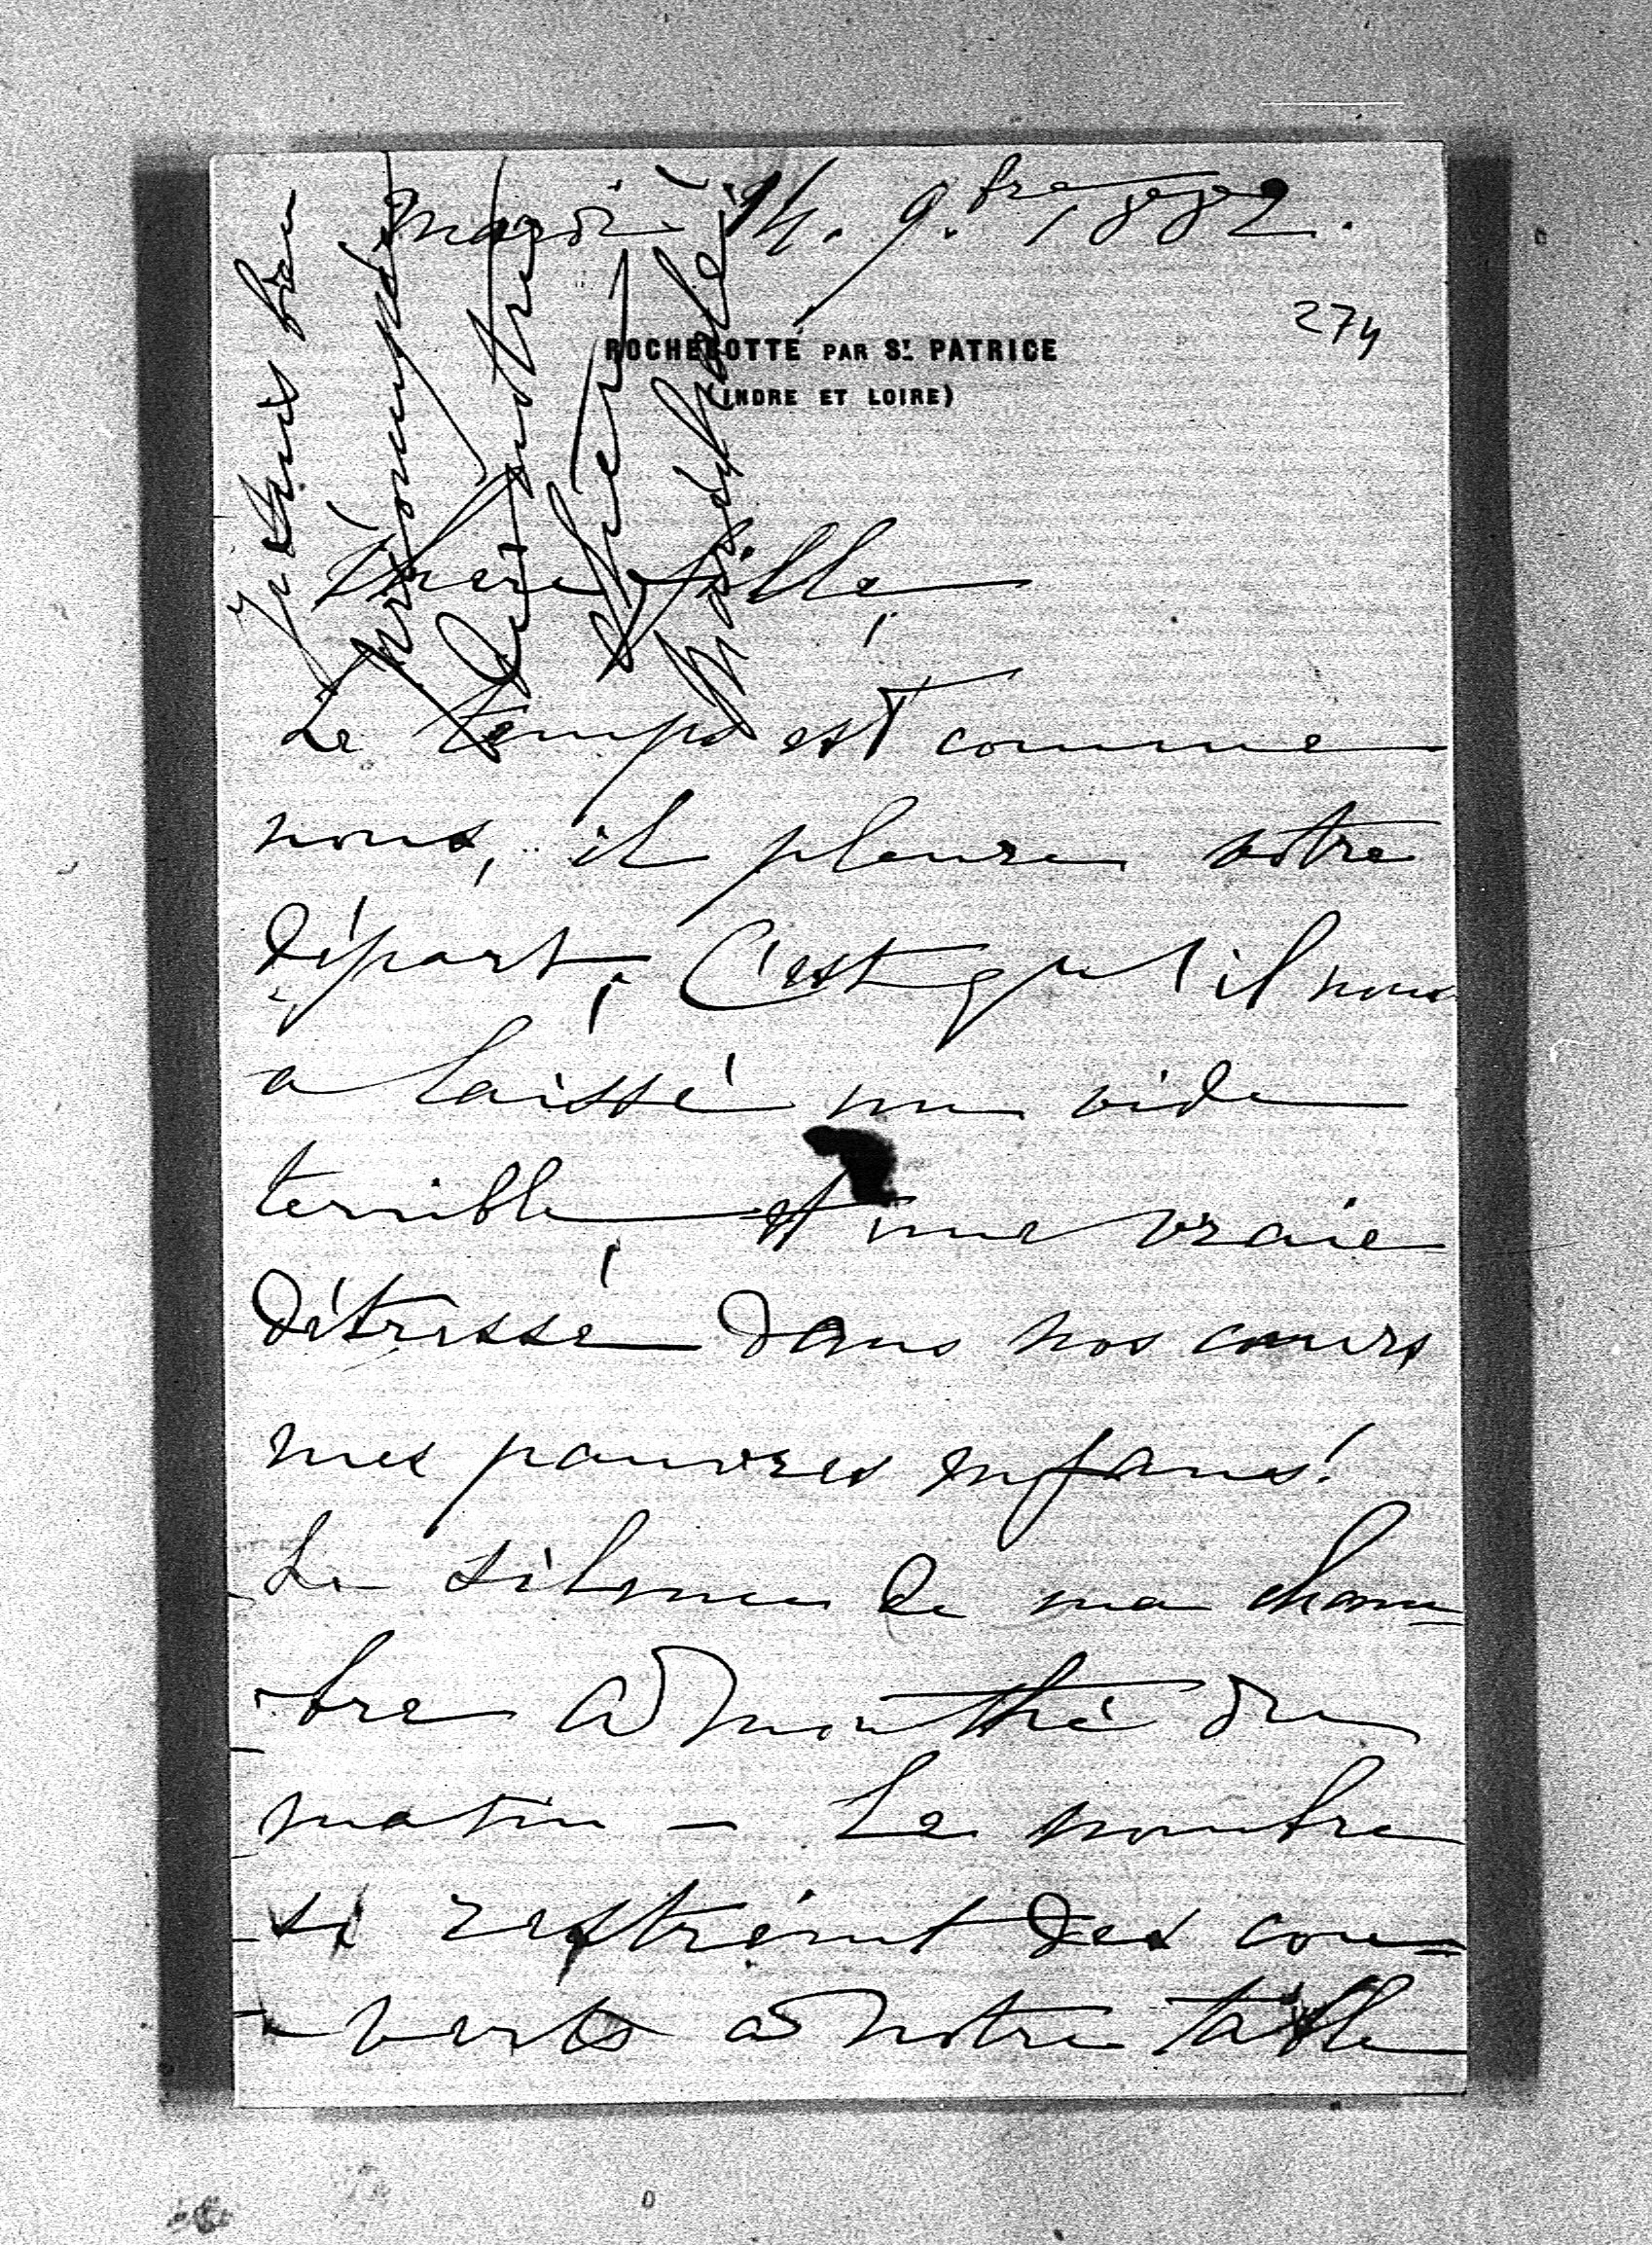 Mardi 14. 9.bre 1882.
274
ROCHECOTTE PAR St. PATRICE
(INDRE ET LOIRE)
Chère fille,
Le temps est comme
nous, il pleure votre
départ, C'est qu'il nous
a laissé un vide
terrible, et une vraie
détresse dans nos cœurs
mes pauvres enfans!
Le silence de ma cham
-bre à mon thé du
matin - Le nombre
si restreint des cou=
-verts à notre table
Je suis bien
préoccupée
de votre
chère